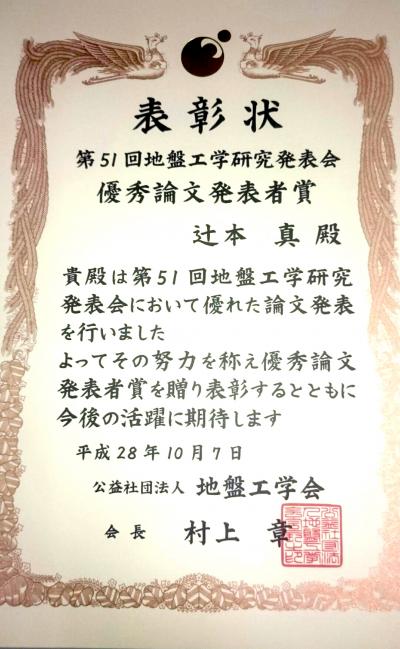 表彰状
第51回地盤工学研究発表会
優秀論文発表者賞
辻本 真 殿
貴殿は第51回地盤工学研究
発表会において優れた論文発表
を行いました
よってその努力を称え優秀論文
発表者賞を贈り表彰するとともに
今後の活躍に期待します
平成28年10月7日
公益社団法人 地盤工学会
会長 村上 章